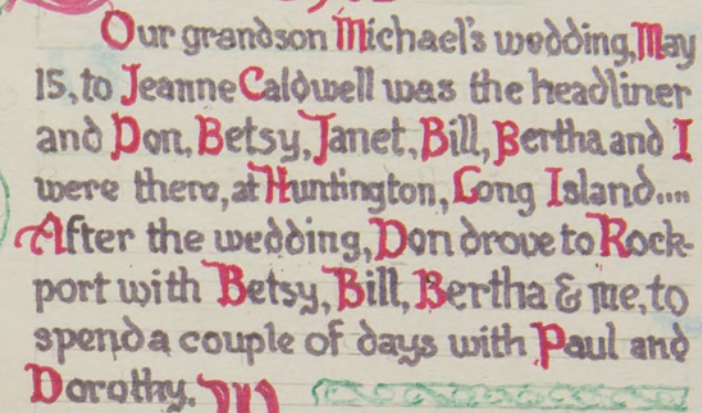 Our grandson Michael's wedding, May
15, to Jeanne Caldwell was the headliner
and Don, Betsy, Janet, Bill, Bertha and I
were there, at Huntington, Long Island....
After the wedding, Don drove to Rock-
port with Betsy, Bill, Bertha & me, to
spend a couple of days with Paul and
Dorothy.